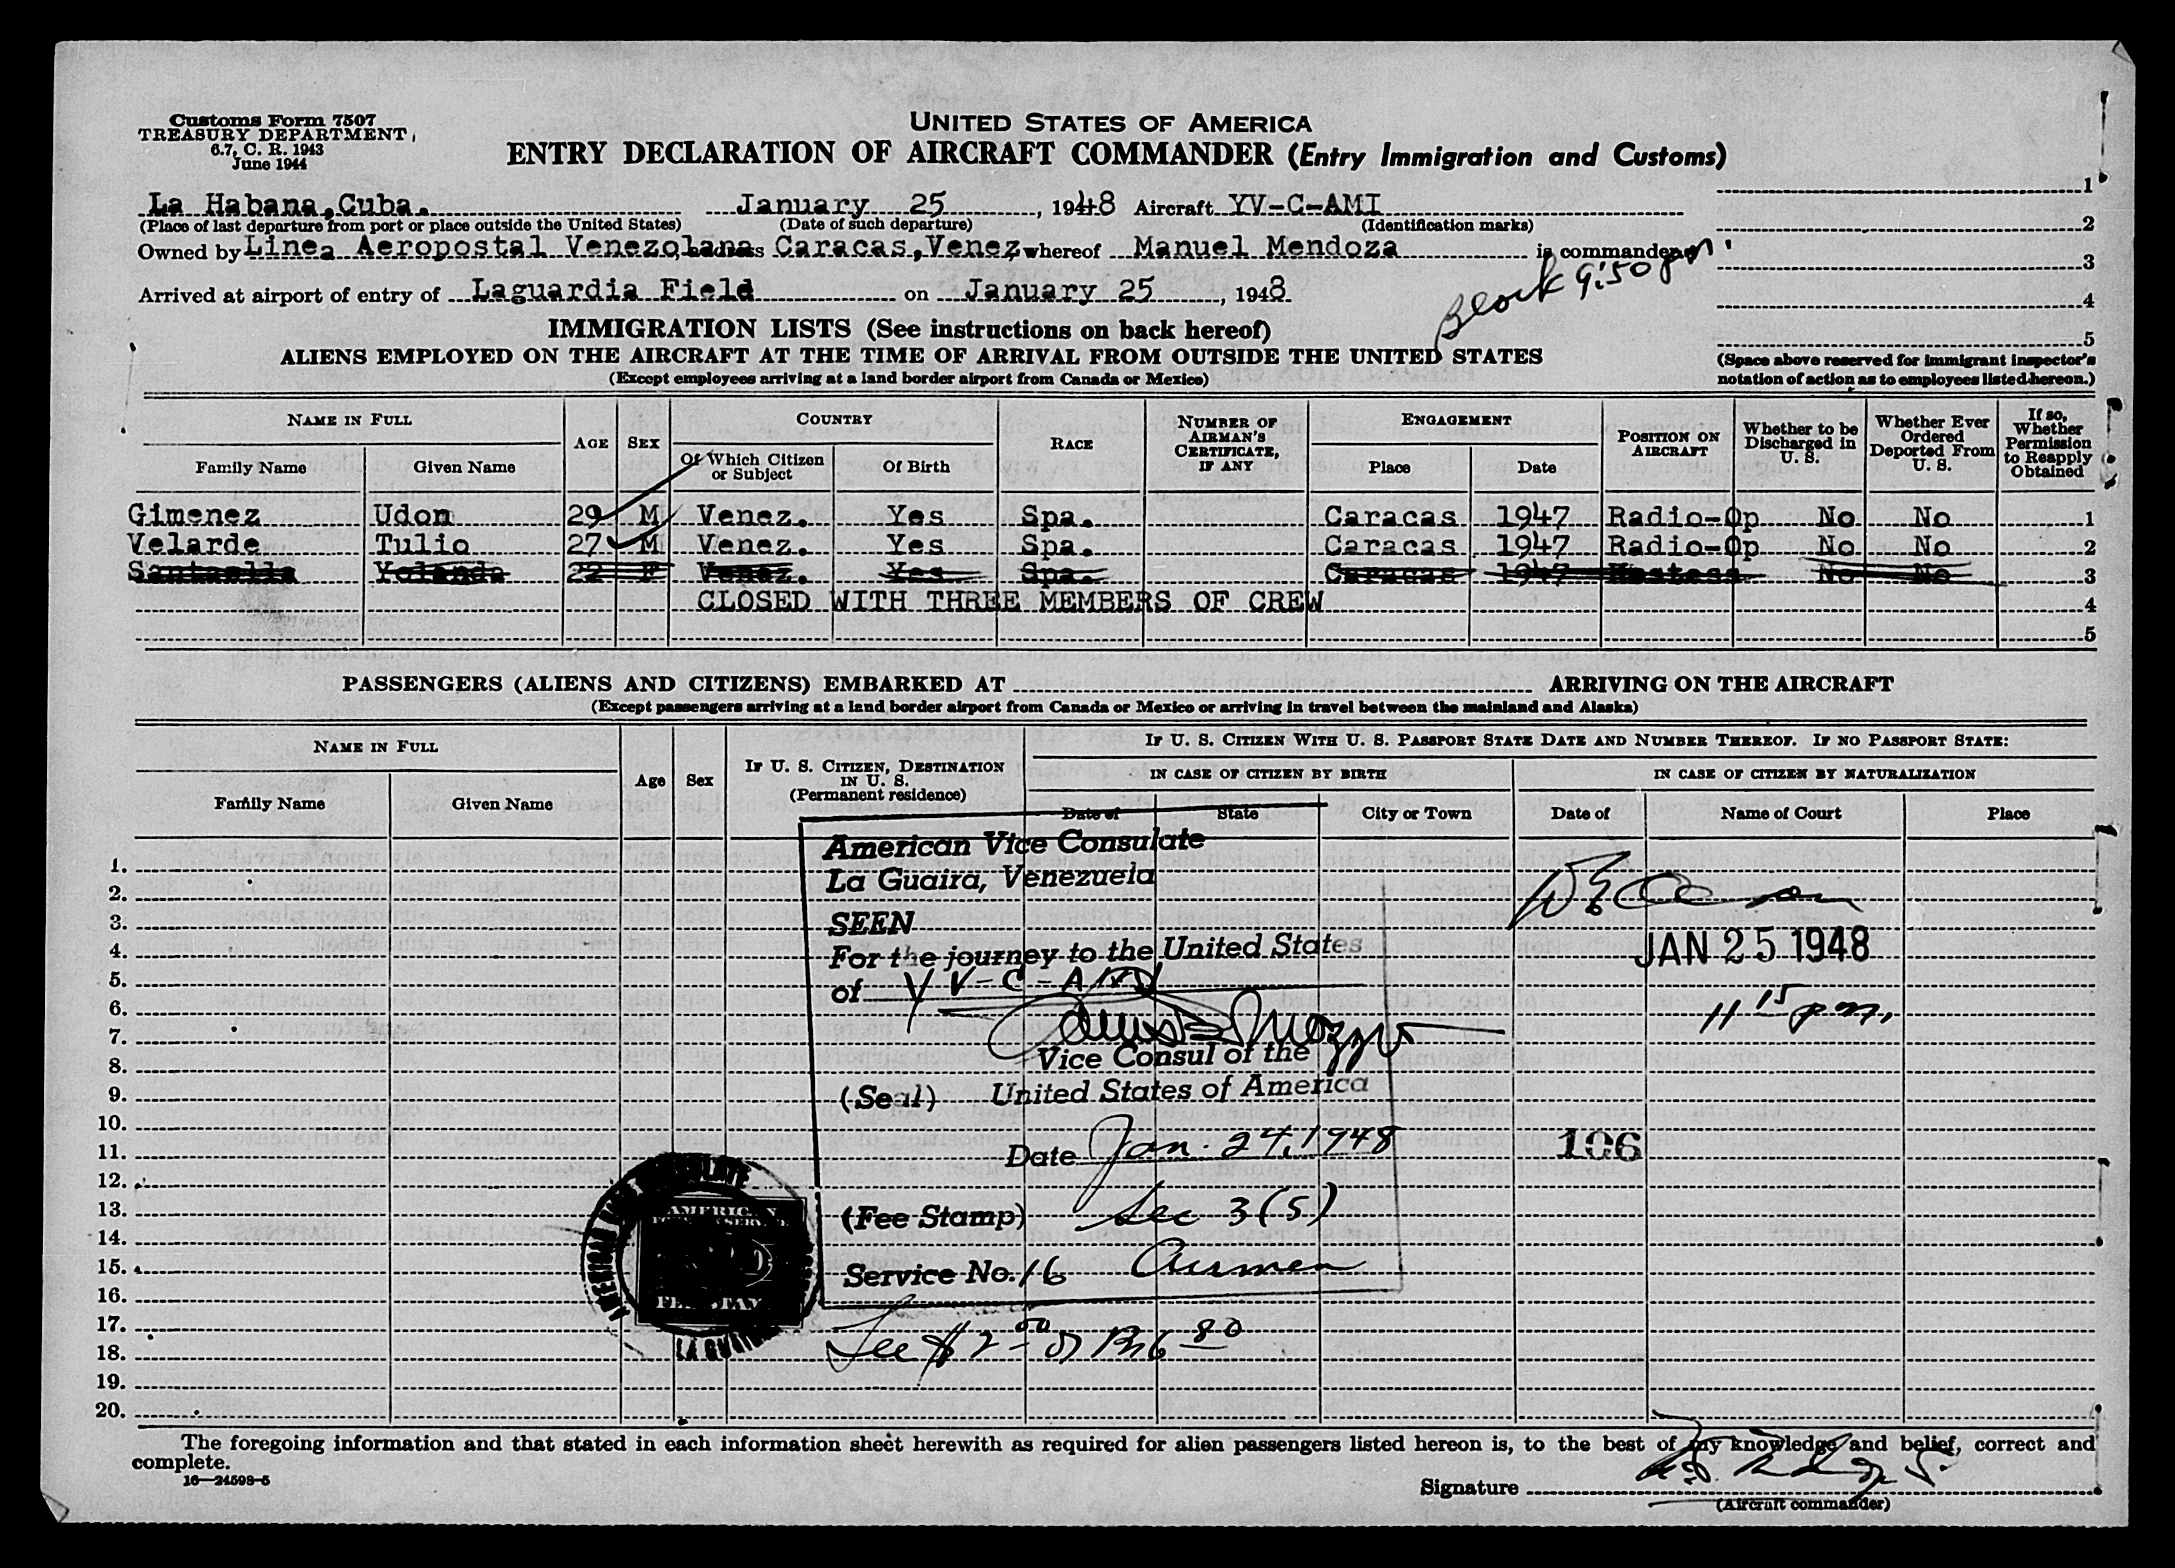 Customs Form 7507
TREASURY DEPARTMENT
6.7, C. R. 1943
June 1944
UNITED STATES OF AMERICA
ENTRY DECLARATION OF AIRCRAFT COMMANDER (Entry Immigration and Customs)
La Habana,Cuba. January 25, 1948 Aircraft YV-C-AMI
(Place of last departure from port or place outside the United States) (Date of such departure) (Identification marks)
Owned by Linea Aeropostal Venezolana Caracas,Venez, whereof Manuel Mendoza is commander
Block 9:50 pm
Arrived at airport of entry of Laguardia Field on January 25, 1948
1
2
3
4
5
(Space above reserved for immigrant inspector's
notation of action as to employees listed hereon.)
IMMIGRATION LISTS (See instructions on back hereof)
ALIENS EMPLOYED ON THE AIRCRAFT AT THE TIME OF ARRIVAL FROM OUTSIDE THE UNITED STATES
(Except employees arriving at a land border airport from Canada or Mexico)
NAME IN FULL AGE SEX COUNTRY RACE NUMBER OF AIRMAN'S CERTIFICATE, IF ANY ENGAGEMENT POSITION ON AIRCRAFT Whether to be Discharged in U. S. Whether Ever Ordered Deported From U. S. If so, Whether Permission to Reapply Obtained
Family Name Given Name Of Which Citizen or Subject Of Birth Place Date
Gimenez Udon 29 M Venez. Yes Spa. Caracas 1947 Radio-Op No No 1
Velarde Tulio 27 M Venez. Yes Spa. Caracas 1947 Radio-Op No No 2
Yolanda 22 F Venez. Yes Spa. Caracas 1947 Hostess No No 3
CLOSED WITH THREE MEMBERS OF CREW 4
5
PASSENGERS (ALIENS AND CITIZENS) EMBARKED AT ARRIVING ON THE AIRCRAFT
(Except passengers arriving at a land border airport from Canada or Mexico or arriving in travel between the mainland and Alaska)
NAME IN FULL Age Sex IF U. S. CITIZEN, DESTINATION IN U. S. (Permanent residence) IF U. S. CITIZEN WITH U. S. PASSPORT STATE DATE AND NUMBER THEREOF. IF NO PASSPORT STATE:
IN CASE OF CITIZEN BY BIRTH IN CASE OF CITIZEN BY NATURALIZATION
Family Name Given Name Date of State City or Town Date of Name of Court Place
1.
2.
3.
4.
5.
6.
7.
8.
9.
10.
11.
12.
13.
14.
15.
16.
17.
18.
19.
20.
American Vice Consulate
La Guaira, Venezuela
SEEN
For the journey to the United States
of YV-C-AMI
Vice Consul of the
(Seal) United States of America
Date Jan. 24, 1948
(Fee Stamp) Sec 3(5)
Service No. 16 Airmen
Fee $2
JAN 25 1948
11 15 pm.
106
AMERICAN
LA GUAIRA
The foregoing information and that stated in each information sheet herewith as required for alien passengers listed hereon is, to the best of my knowledge and belief, correct and
complete.
16—24598-5
Signature
(Aircraft commander)